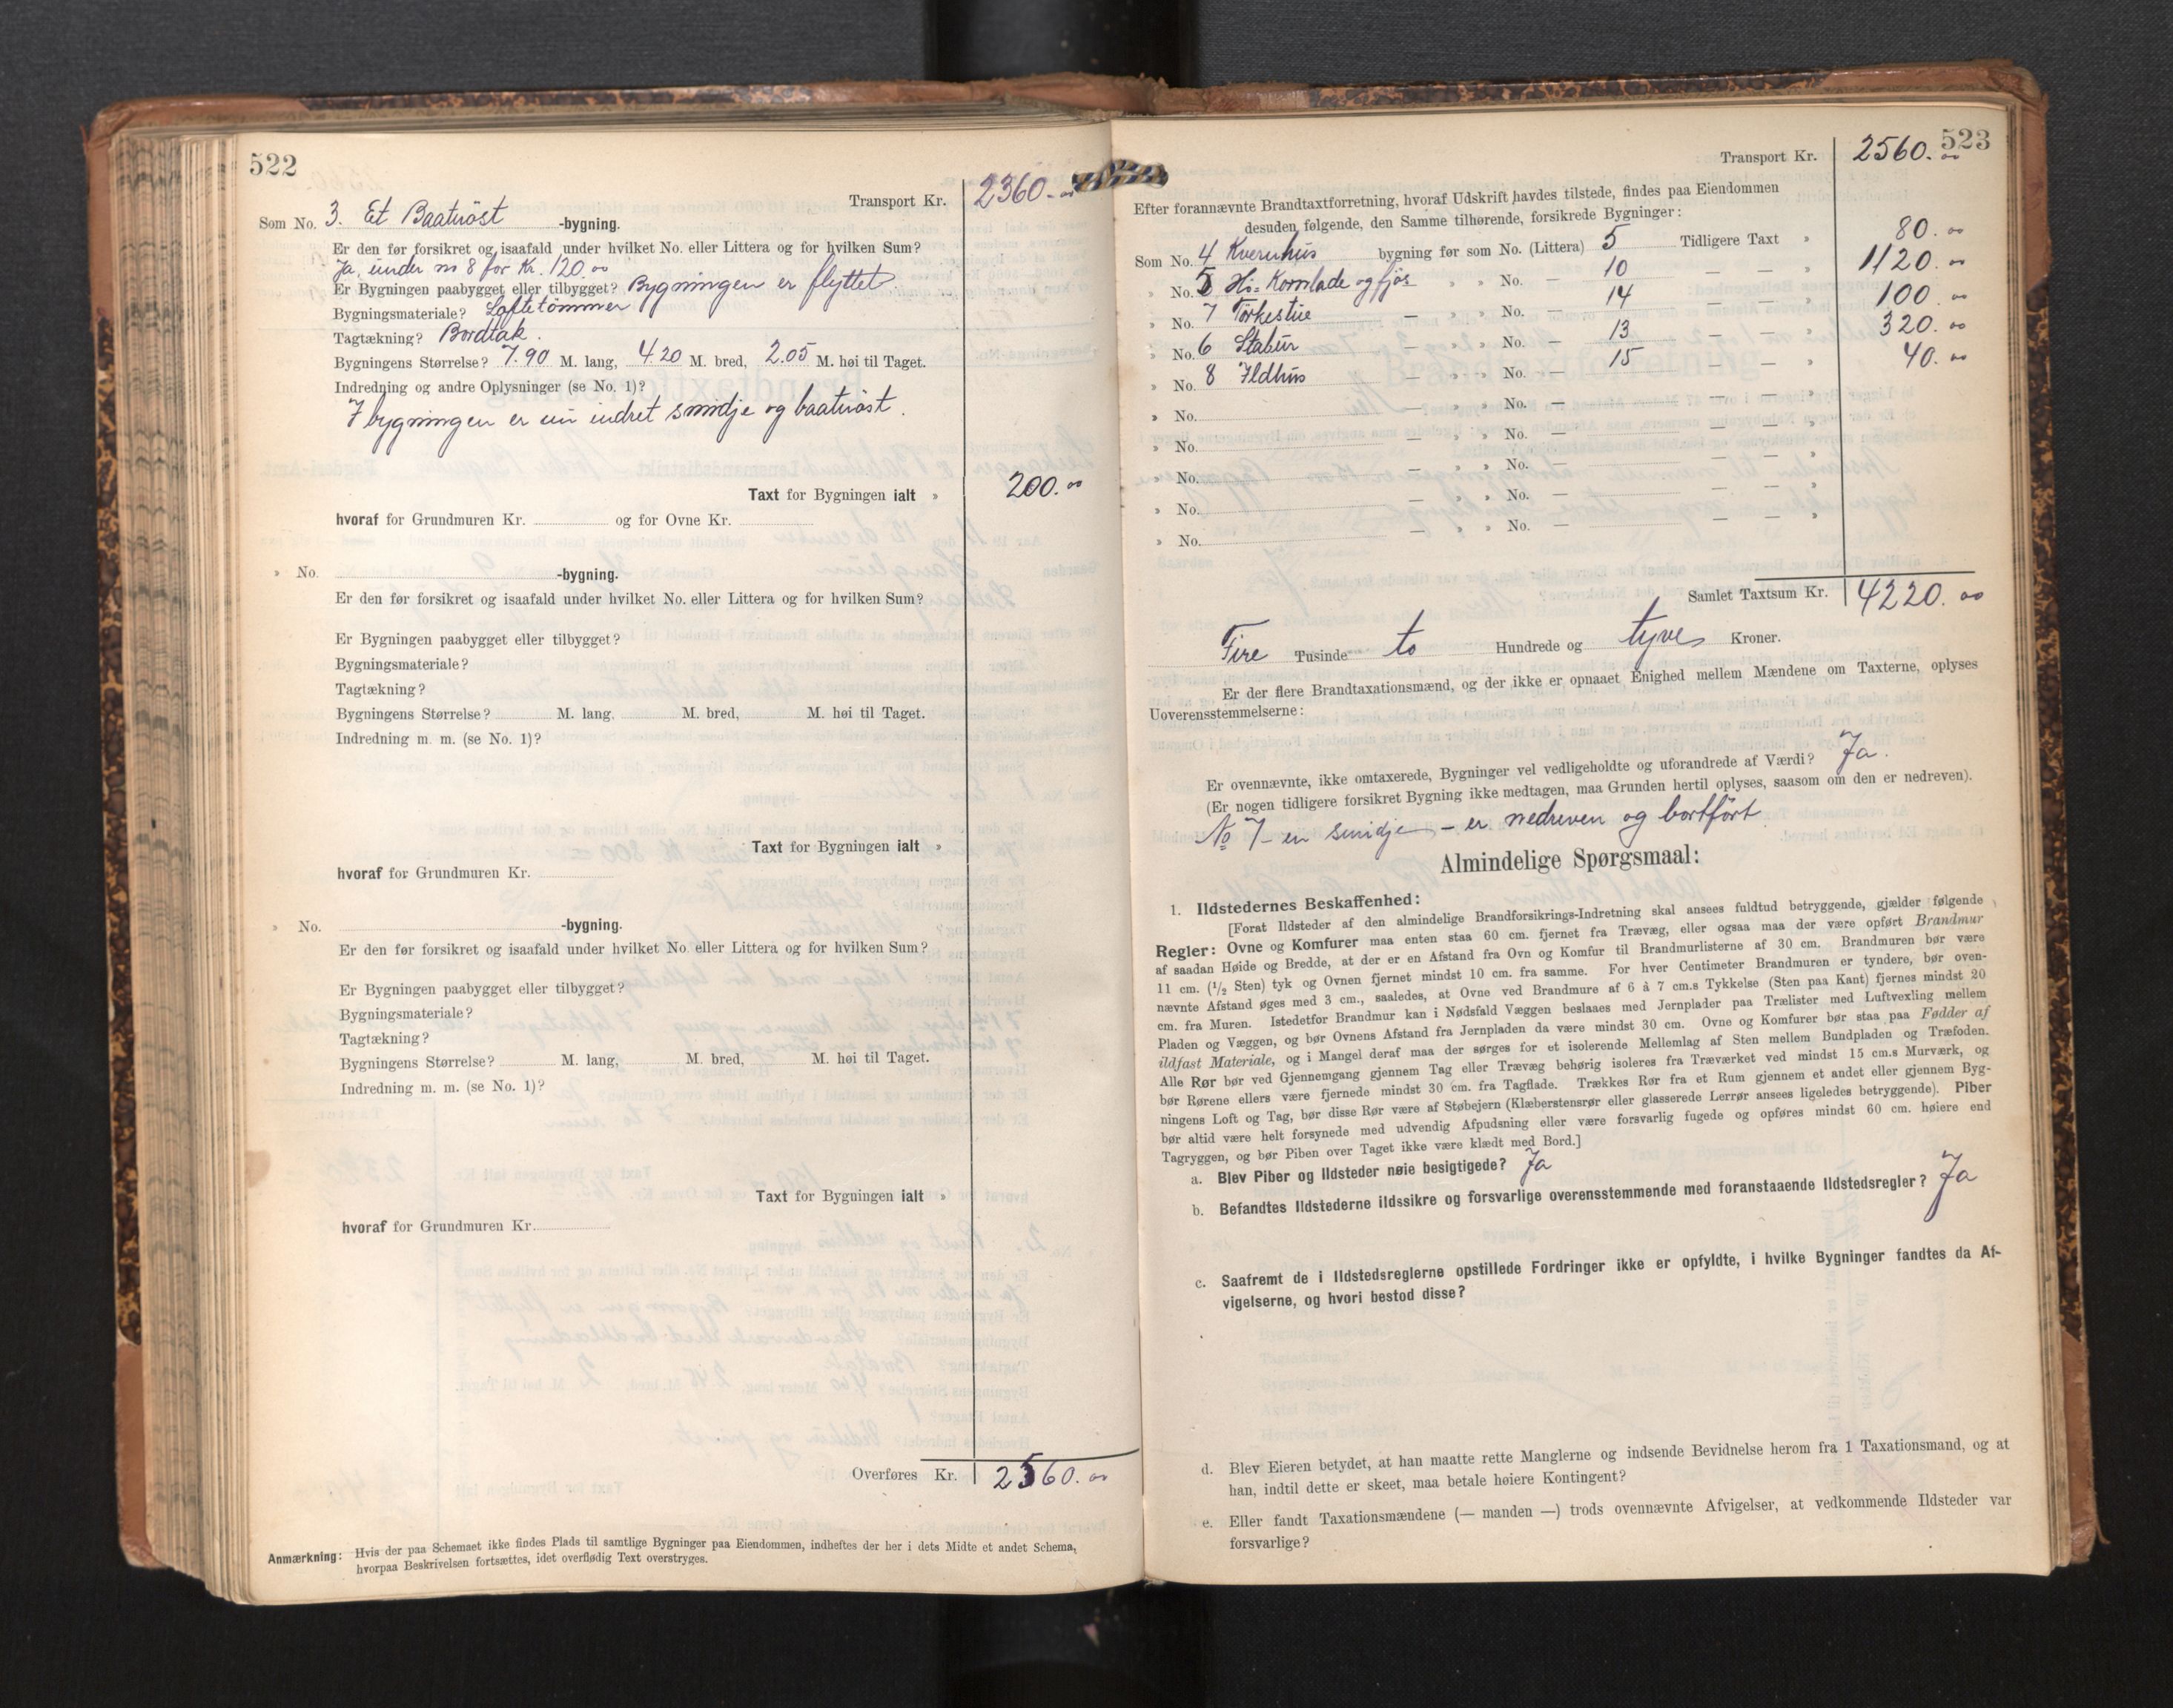 522
Transport Kr. 2360.00
Som No. 3. Et Baatnöst -bygning.
Er den før forsikret og isaafald under hvilket No. eller Littera og for hvilken Sum?
Ja, under no 8 for Kr. 120.00
Er Bygningen paabygget eller tilbygget? Bygningen er flyttet
Bygningsmateriale? Loftetömmer
Tagtækning? Bordtak.
Bygningens Størrelse? 7.90 M. lang, 4.20 M. bred, 2.05 M. høi til Taget.
Indredning og andre Oplysninger (se No. 1)?
I bygningen er nu indret smidje og baatnöst.
Taxt for Bygningen ialt » 200.00
hvoraf for Grundmuren Kr. og for Ovne Kr.
» No. -bygning.
Er den før forsikret og isaafald under hvilket No. eller Littera og for hvilken Sum?
Er Bygningen paabygget eller tilbygget?
Bygningsmateriale?
Tagtækning?
Bygningens Størrelse? M. lang, M. bred, M. høi til Taget.
Indredning m. m. (se No. 1)?
Taxt for Bygningen ialt »
hvoraf for Grundmuren Kr.
» No. -bygning.
Er den før forsikret og isaafald under hvilket No. eller Littera og for hvilken Sum?
Er Bygningen paabygget eller tilbygget?
Bygningsmateriale?
Tagtækning?
Bygningens Størrelse? M. lang, M. bred, M. høi til Taget.
Indredning m. m. (se No. 1)?
Taxt for Bygningen ialt »
hvoraf for Grundmuren Kr.
Overføres Kr. 2560.00
Anmærkning: Hvis der paa Schemaet ikke findes Plads til samtlige Bygninger paa Eiendommen, indheftes der her i dets Midte et andet Schema,
hvorpaa Beskrivelsen fortsættes, idet overflødig Text overstryges.
523
Transport Kr. 2560.00
Efter forannævnte Brandtaxtforretning, hvoraf Udskrift havdes tilstede, findes paa Eiendommen
desuden følgende, den Samme tilhørende, forsikrede Bygninger:
Som No. 4 Kvernhus bygning før som No. (Littera) 5 Tidligere Taxt » 80.00
» No. 5 Hö- Kornlade og fjös » » No. — 10 — — » 1120.00
» No. 7 Törkestue — » » No. — 14 — — » 100.00
» No. 6 Stabur — » » No. — 13 — — » 320.00
» No. 8 Ildhus — » » No. — 15 — — » 40.00
» No. — » » No. — — — »
» No. — » » No. — — — »
» No. — » » No. — — — »
» No. — » » No. — — — »
» No. — » » No. — — — »
Samlet Taxtsum Kr. 4220.00
Fire Tusinde to Hundrede og tyve Kroner.
Er der flere Brandtaxationsmænd, og der ikke er opnaaet Enighed mellem Mændene om Taxterne, oplyses
Uoverensstemmelserne:
Er ovennævnte, ikke omtaxerede, Bygninger vel vedligeholdte og uforandrede af Værdi? Ja.
(Er nogen tidligere forsikret Bygning ikke medtagen, maa Grunden hertil oplyses, saasom om den er nedreven).
No 7 - en smidje - er nedreven og bortfört
Almindelige Spørgsmaal:
1. Ildstedernes Beskaffenhed:
[Forat Ildsteder af den almindelige Brandforsikrings-Indretning skal ansees fuldtud betryggende, gjælder følgende
Regler: Ovne og Komfurer maa enten staa 60 cm. fjernet fra Trævæg, eller ogsaa maa der være opført Brandmur
af saadan Høide og Bredde, at der er en Afstand fra Ovn og Komfur til Brandmurlisterne af 30 cm. Brandmuren bør være
11 cm. (1/2 Sten) tyk og Ovnen fjernet mindst 10 cm. fra samme. For hver Centimeter Brandmuren er tyndere, bør oven-
nævnte Afstand øges med 3 cm., saaledes, at Ovne ved Brandmure af 6 à 7 cm.s Tykkelse (Sten paa Kant) fjernes mindst 20
cm. fra Muren. Istedetfor Brandmur kan i Nødsfald Væggen beslaaes med Jernplader paa Trælister med Luftvexling mellem
Pladen og Væggen, og bør Ovnens Afstand fra Jernpladen da være mindst 30 cm. Ovne og Komfurer bør staa paa Fødder af
ildfast Materiale, og i Mangel deraf maa der sørges for et isolerende Mellemlag af Sten mellem Bundpladen og Træfoden.
Alle Rør bør ved Gjennemgang gjennem Tag eller Trævæg behørig isoleres fra Træværket ved mindst 15 cm.s Murværk, og
bør Rørene ellers være fjernede mindst 30 cm. fra Tagflade. Trækkes Rør fra et Rum gjennem et andet eller gjennem Byg-
ningens Loft og Tag, bør disse Rør være af Støbejern (Klæberstensrør eller glasserede Lerrør ansees ligeledes betryggende). Piber
bør altid være helt forsynede med udvendig Afpudsning eller være forsvarlig fugede og opføres mindst 60 cm. høiere end
Tagryggen, og bør Piben over Taget ikke være klædt med Bord.]
a. Blev Piber og Ildsteder nøie besigtigede? Ja
b. Befandtes Ildstederne ildssikre og forsvarlige overensstemmende med foranstaaende Ildstedsregler? Ja
c. Saafremt de i Ildstedsreglerne opstillede Fordringer ikke er opfyldte, i hvilke Bygninger fandtes da Af-
vigelserne, og hvori bestod disse?
d. Blev Eieren betydet, at han maatte rette Manglerne og indsende Bevidnelse herom fra 1 Taxationsmand, og at
han, indtil dette er skeet, maa betale høiere Kontingent?
e. Eller fandt Taxationsmændene (— manden —) trods ovennævnte Afvigelser, at vedkommende Ildsteder var
forsvarlige?